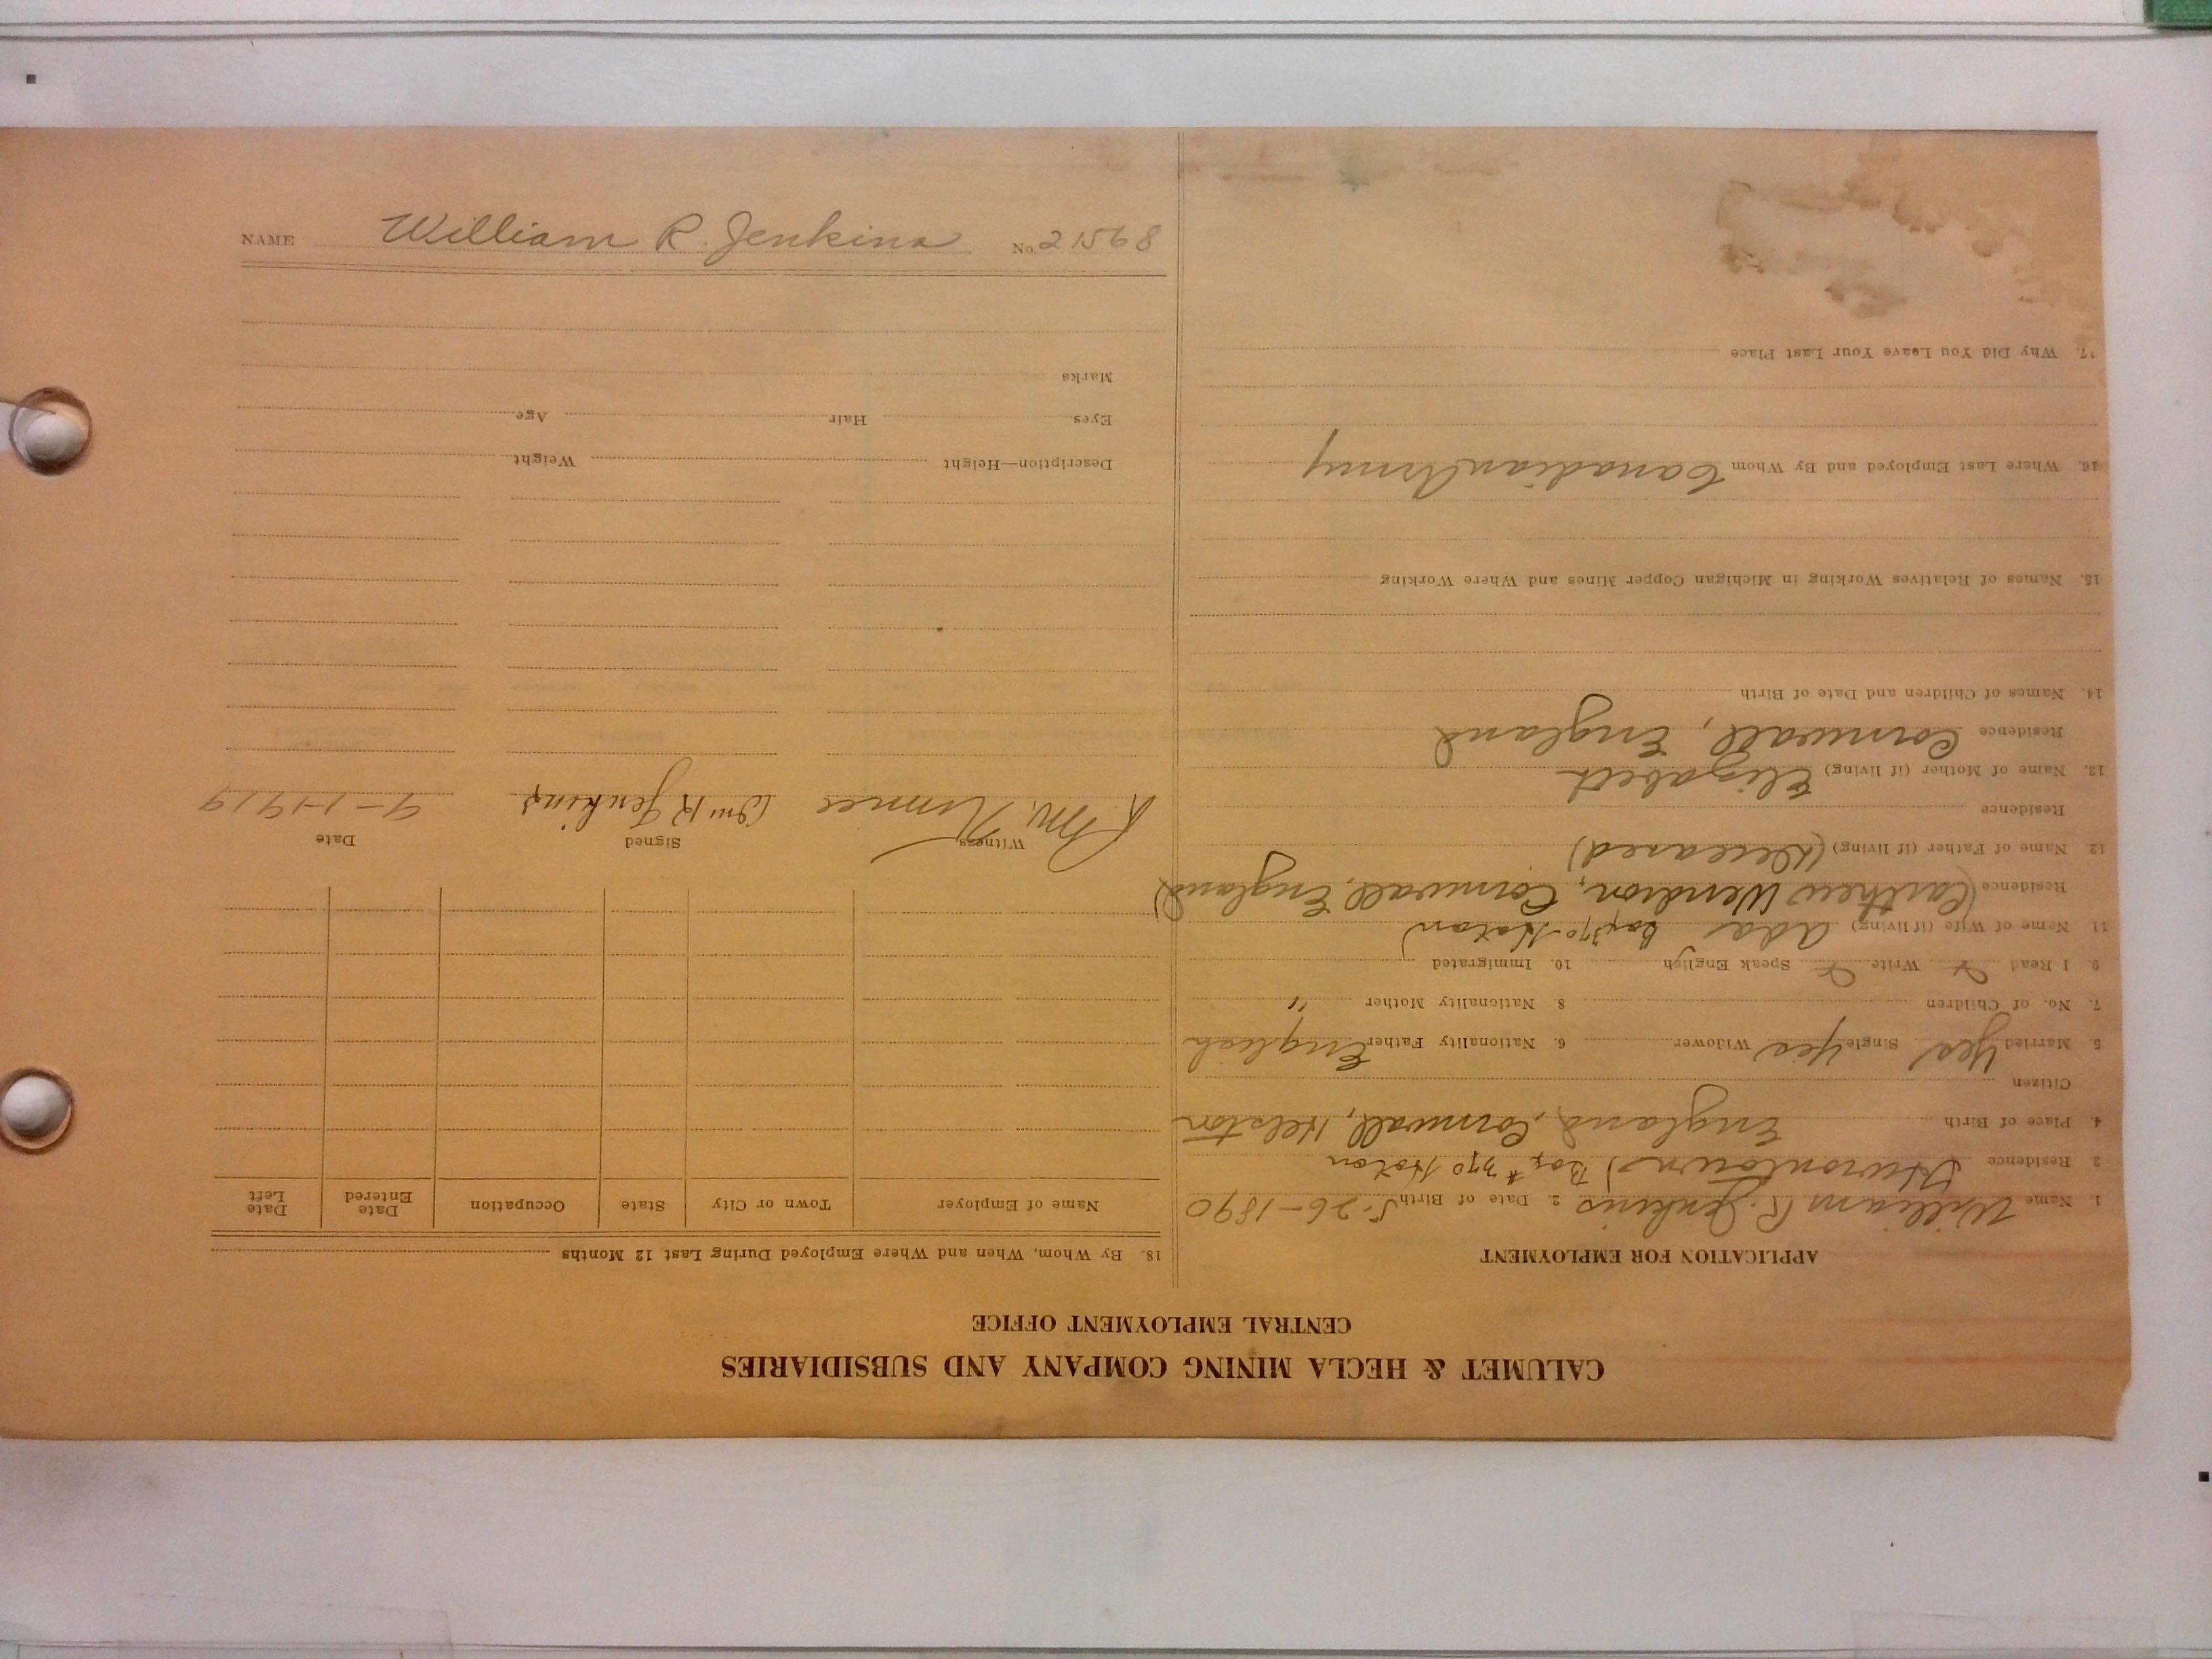 CALUMET & HECLA MINING COMPANY AND SUBSIDIARIES
CENTRAL EMPLOYMENT OFFICE
APPLICATION FOR EMPLOYMENT
1. Name William R. Jenkins 2. Date of Birth 5-26-1890
3. Residence Hurontown Box #370 Hoton
4. Place of Birth England, Cornwall, Helston
Citizen
5. Married Yes Single Yes Widower 6. Nationality Father English
7. No. of Children 8. Nationality Mother "
9. I Read Write Speak English 10. Immigrated
11. Name of Wife (if living) Ada Box 370 Hoton
Residence (Carthew Wendron, Cornwall, England)
12. Name of Father (if living) (Deceased)
Residence
13. Name of Mother (if living) Elizabeth
Residence Cornwall, England
14. Names of Children and Date of Birth
15. Names of Relatives Working in Michigan Copper Mines and Where Working
16. Where Last Employed and By Whom Canadian Army
17. Why Did You Leave Your Last Place
18. By Whom, When and Where Employed During Last 12 Months
Name of Employer Town or City State Occupation Date Entered Date Left
Witness Signed Date
Wm R Jenkins 9-1-1919
Description—Height Weight
Eyes Hair Age
Marks
NAME William R. Jenkins No. 21568